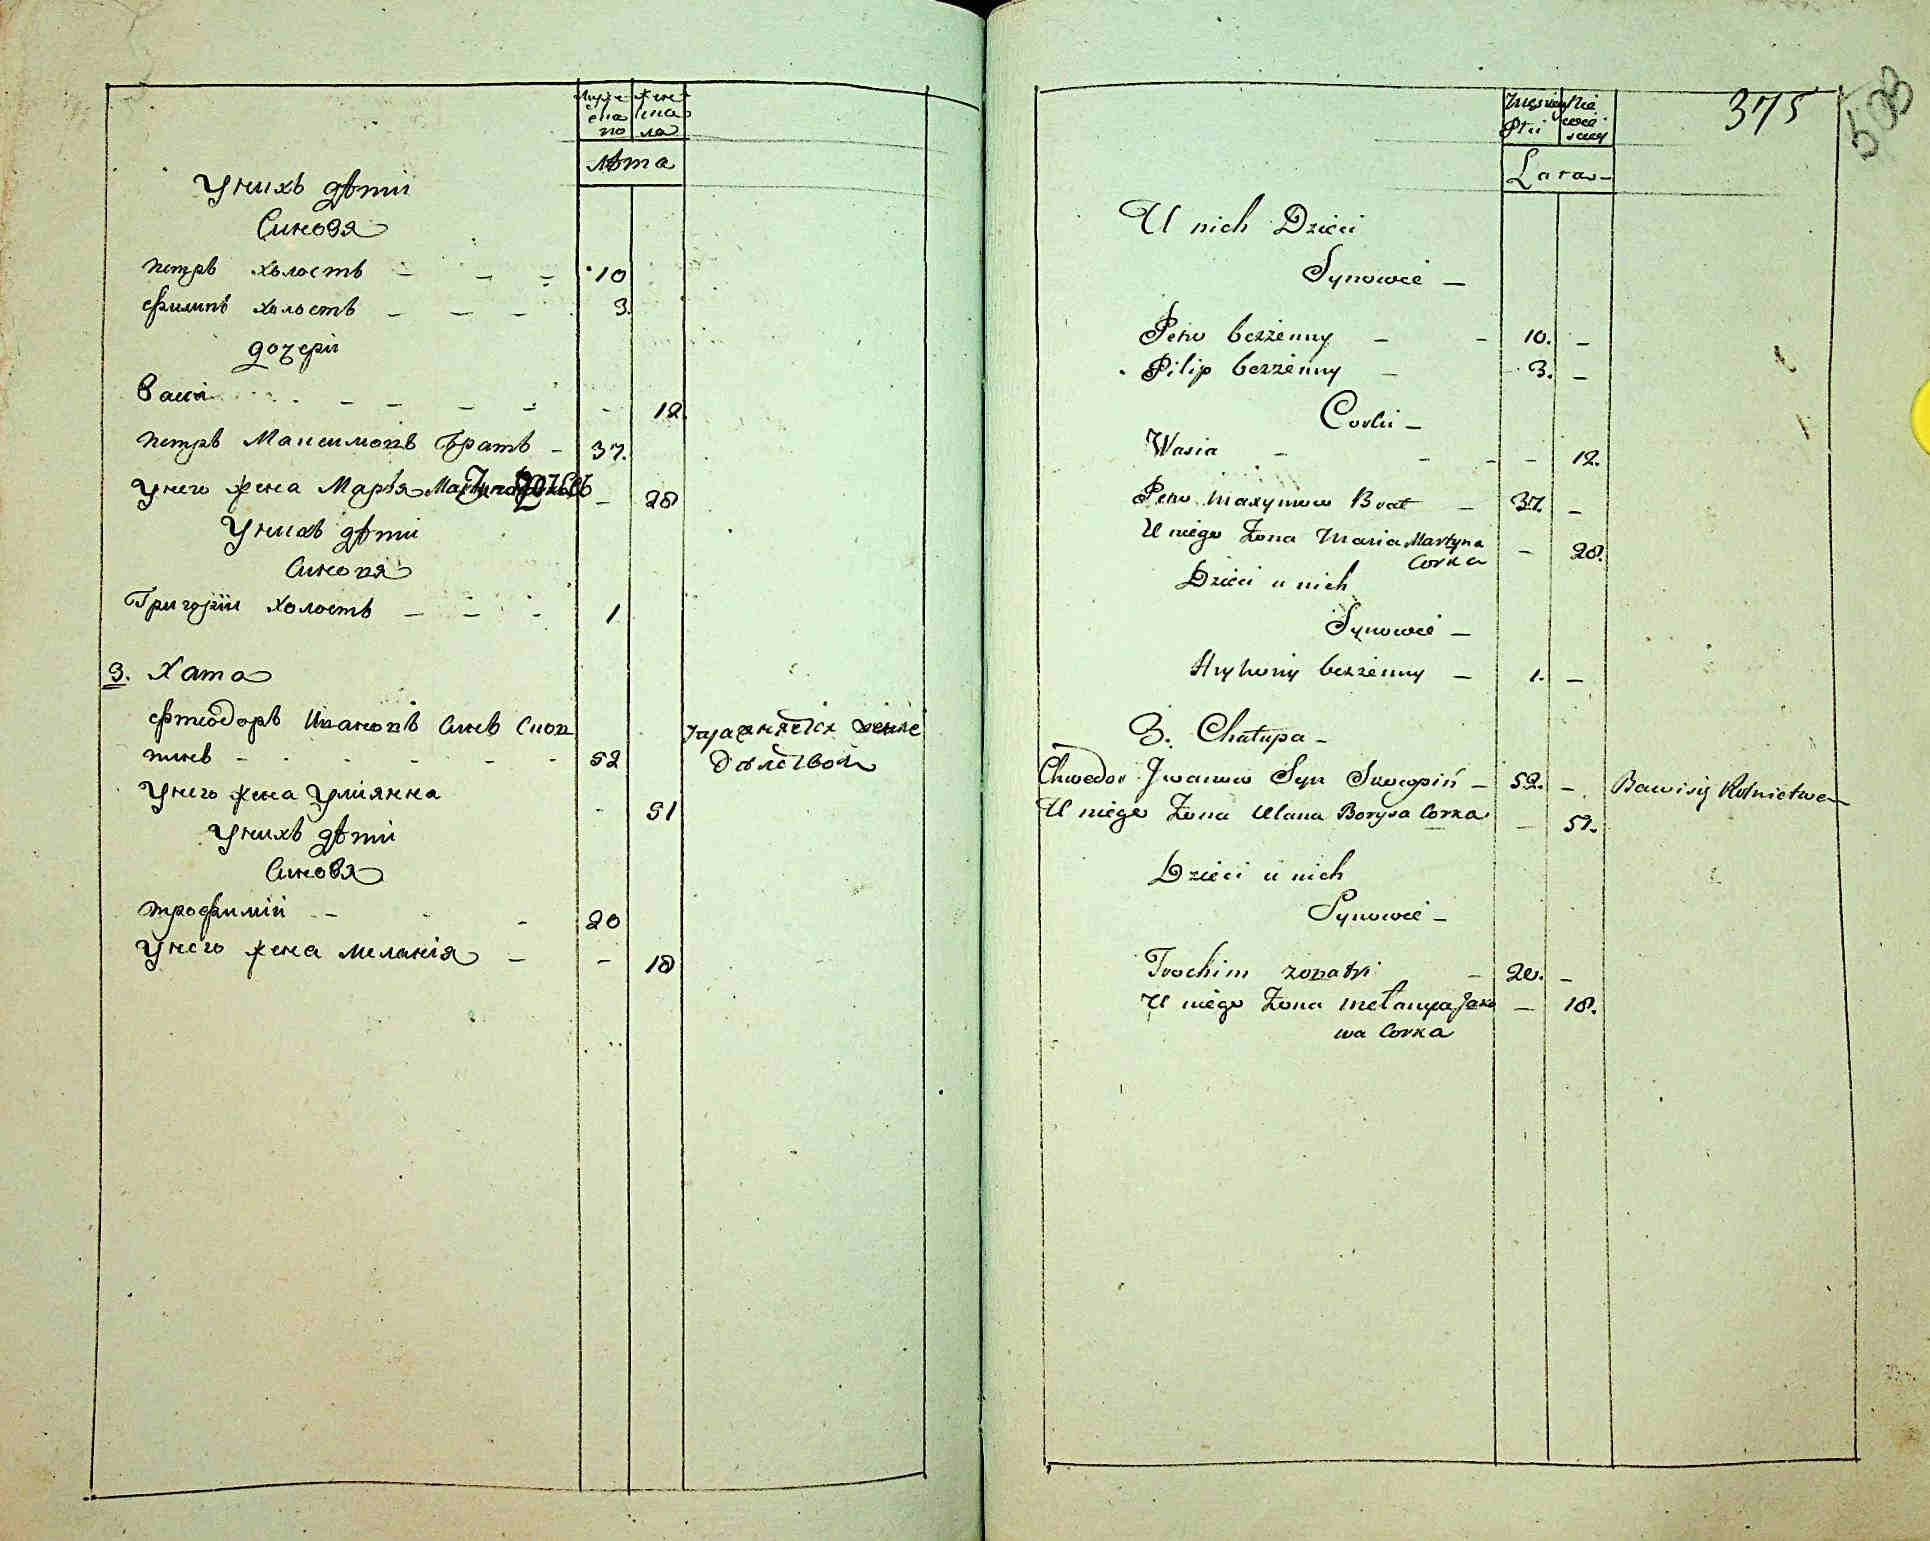 Мужескаго
Женска ла
лѣта
Унихъ дѣти
Синовя
петръ холостъ - - - 10
филипъ холостъ - - - 3.
дочери
Васія - - - - - 12.
петръ Максимовъ братъ - 37.
унего жена Марья Мартинова дочь - 28
Унихъ дѣти
Синовя
Григорій холостъ - - - 1
3. Хата
фтеодоръ Ивановъ Синъ Скоп
пинъ - - - - - - 52
упражняется земле
дѣлством
Унего жена Улиянна - 51
Унихъ дѣти
Синовя
трофимій - - - 20
Унего жена Меланія - - 18
375
508
Męzkiey
Płci
Nie
wie
sciey
Lata -
U nich Dzieci
Synowie -
Petro bezżenny - - 10. -
Pilip bezżenny - 3. -
Corki -
Wasia - - - - 12.
Petro Maxymow Brat - 37. -
U niego Żona Maria Martyna
Corka - 28.
Dzieci u nich
Synowie -
Hryhoriy bezżenny - 1. -
3. Chałupa -
Chwedor Jwanow Syn Skoropiń - 52. - Bawi się Rolnictwem
U niego Żona Ulana Borysa Corka - 51.
Dzieci u nich
Synowie -
Trochim żonatri - 20. -
U niego Żona Mełanya Jako - 18.
wa Corka